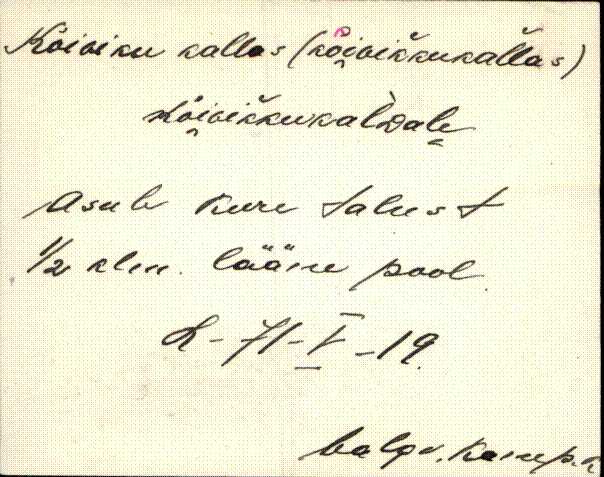 Kõiviku kallas (kõivikkukallas)
kõivikkukaldale
Asub Kure talust
1/2 klm. lääne pool.
L-71-V-19.
Valgv. Kamp.k